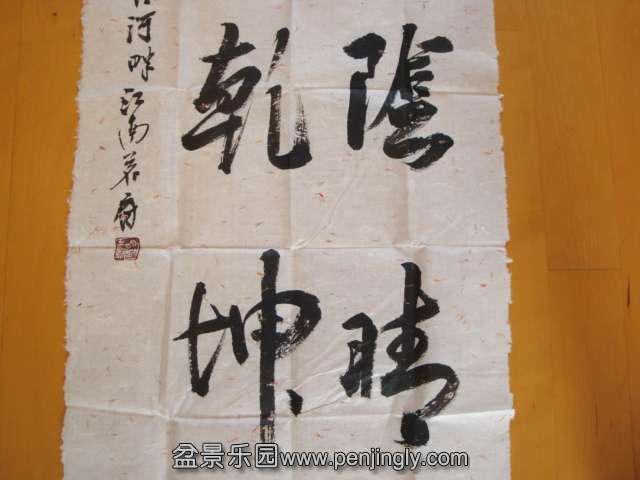 陰晴
乾坤
河畔江南
盆景乐园www.penjingly.com